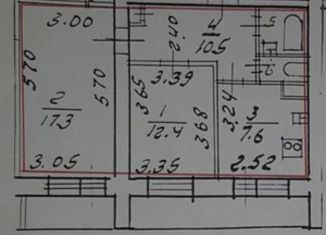 3.00
2.40
4
10.5
5
570
570
3.39
2
17.3
3.65
1
12.4
3.68
3.24
3
7.6
3.05
3.35
2.52